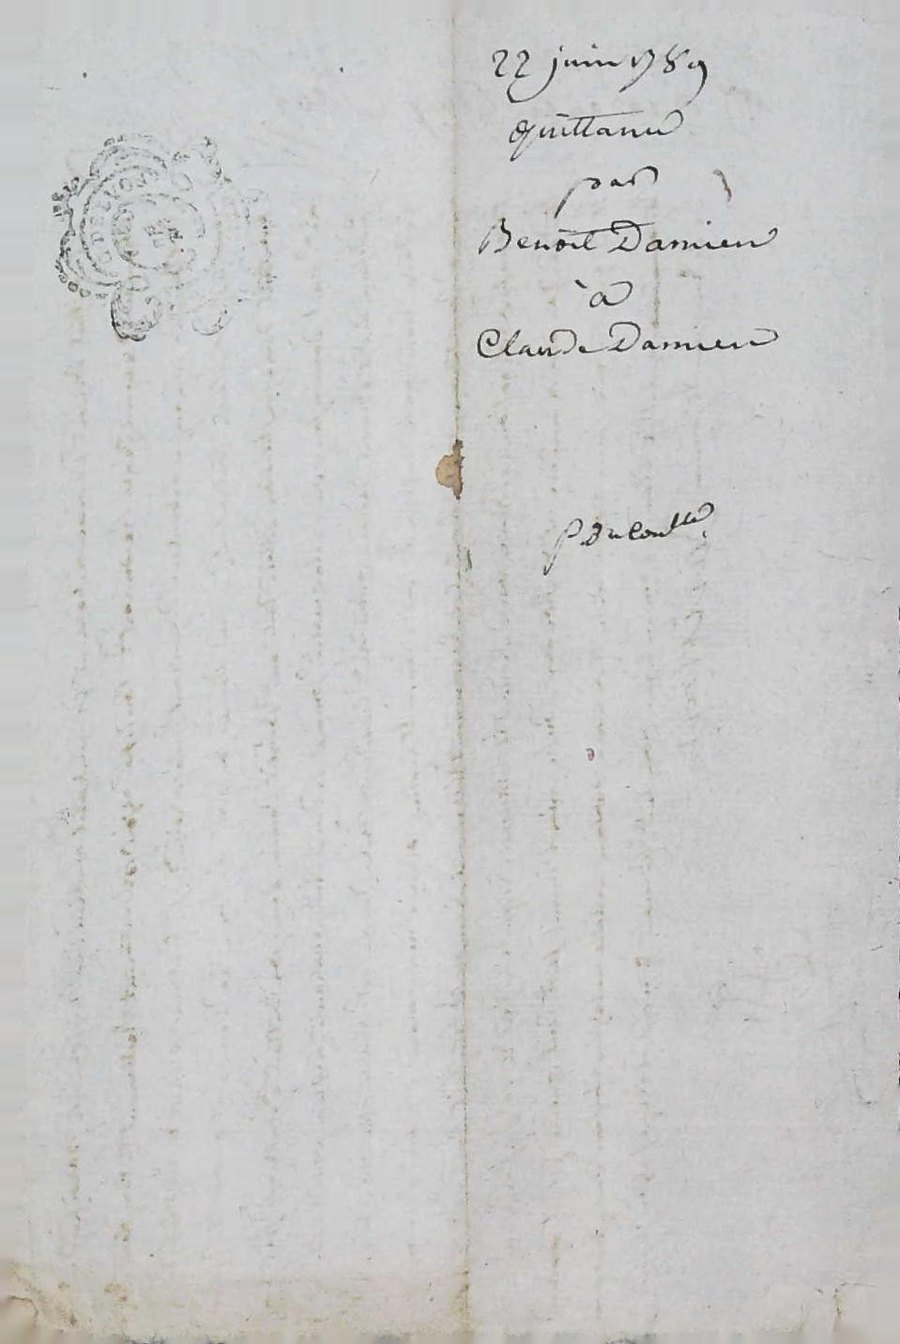 22 juin 1789
quittance
par
Benoit Damien
à
Claude Damien